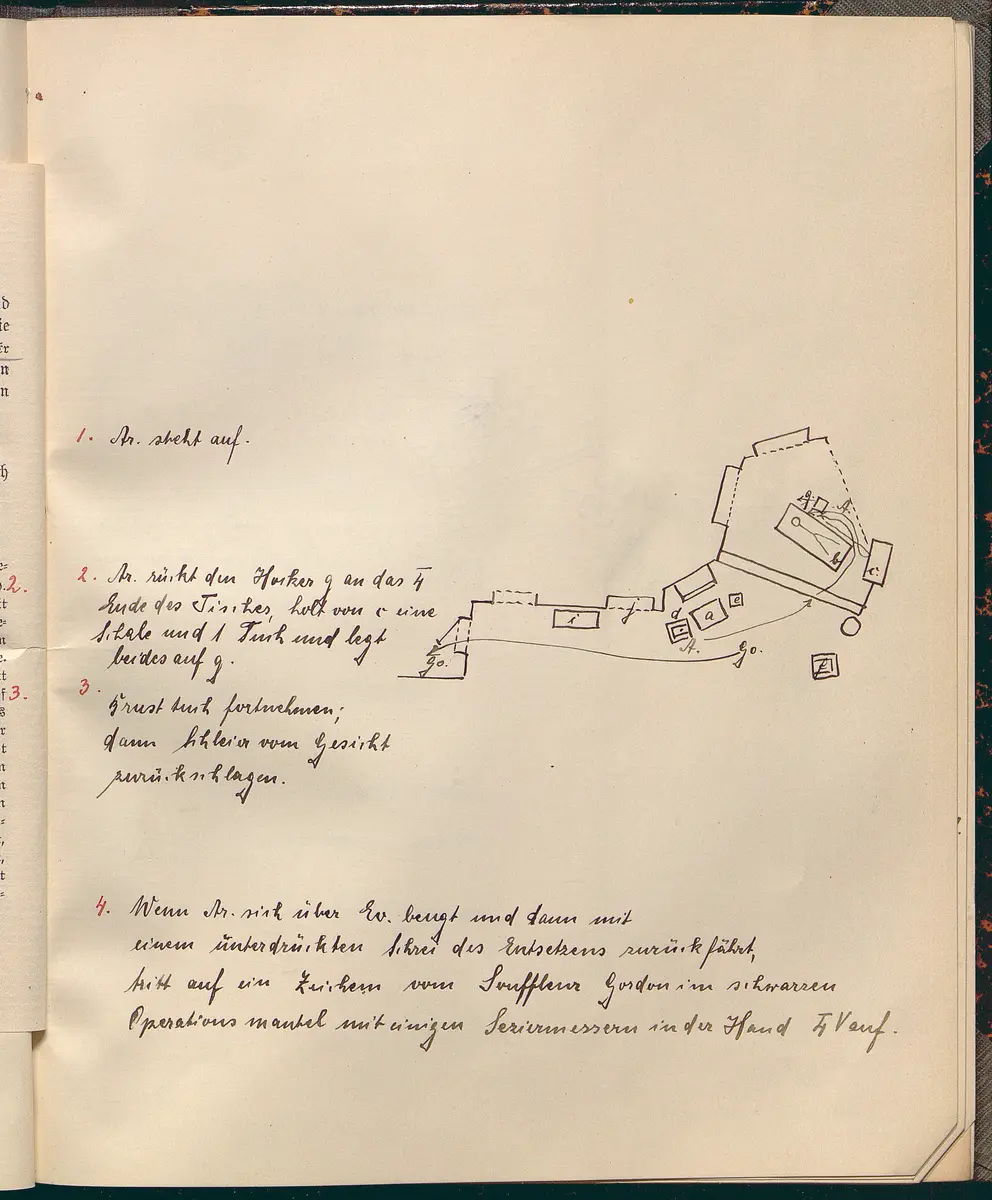 1. Ar. steht auf.
2. Ar. rückt den Hocker g an das
Ende des Tisches, holt von c eine
Schale und 1 Tuch und legt
beides auf g.
3.
Brusttuch fortnehmen;
dann Schleier vom Gesicht
zurückschlagen.
4. Wenn Ar. sich über Ev. beugt und dann mit
einem unterdrückten Schrei des Entsetzens zurückfährt,
tritt auf ein Zeichen vom Souffleur Gordon im schwarzen
Operationsmantel mit einigen Seziermessern in der Hand auf.
2.
3.
g
A.
b
c
i
j
d
a
e
A.
go.
go.